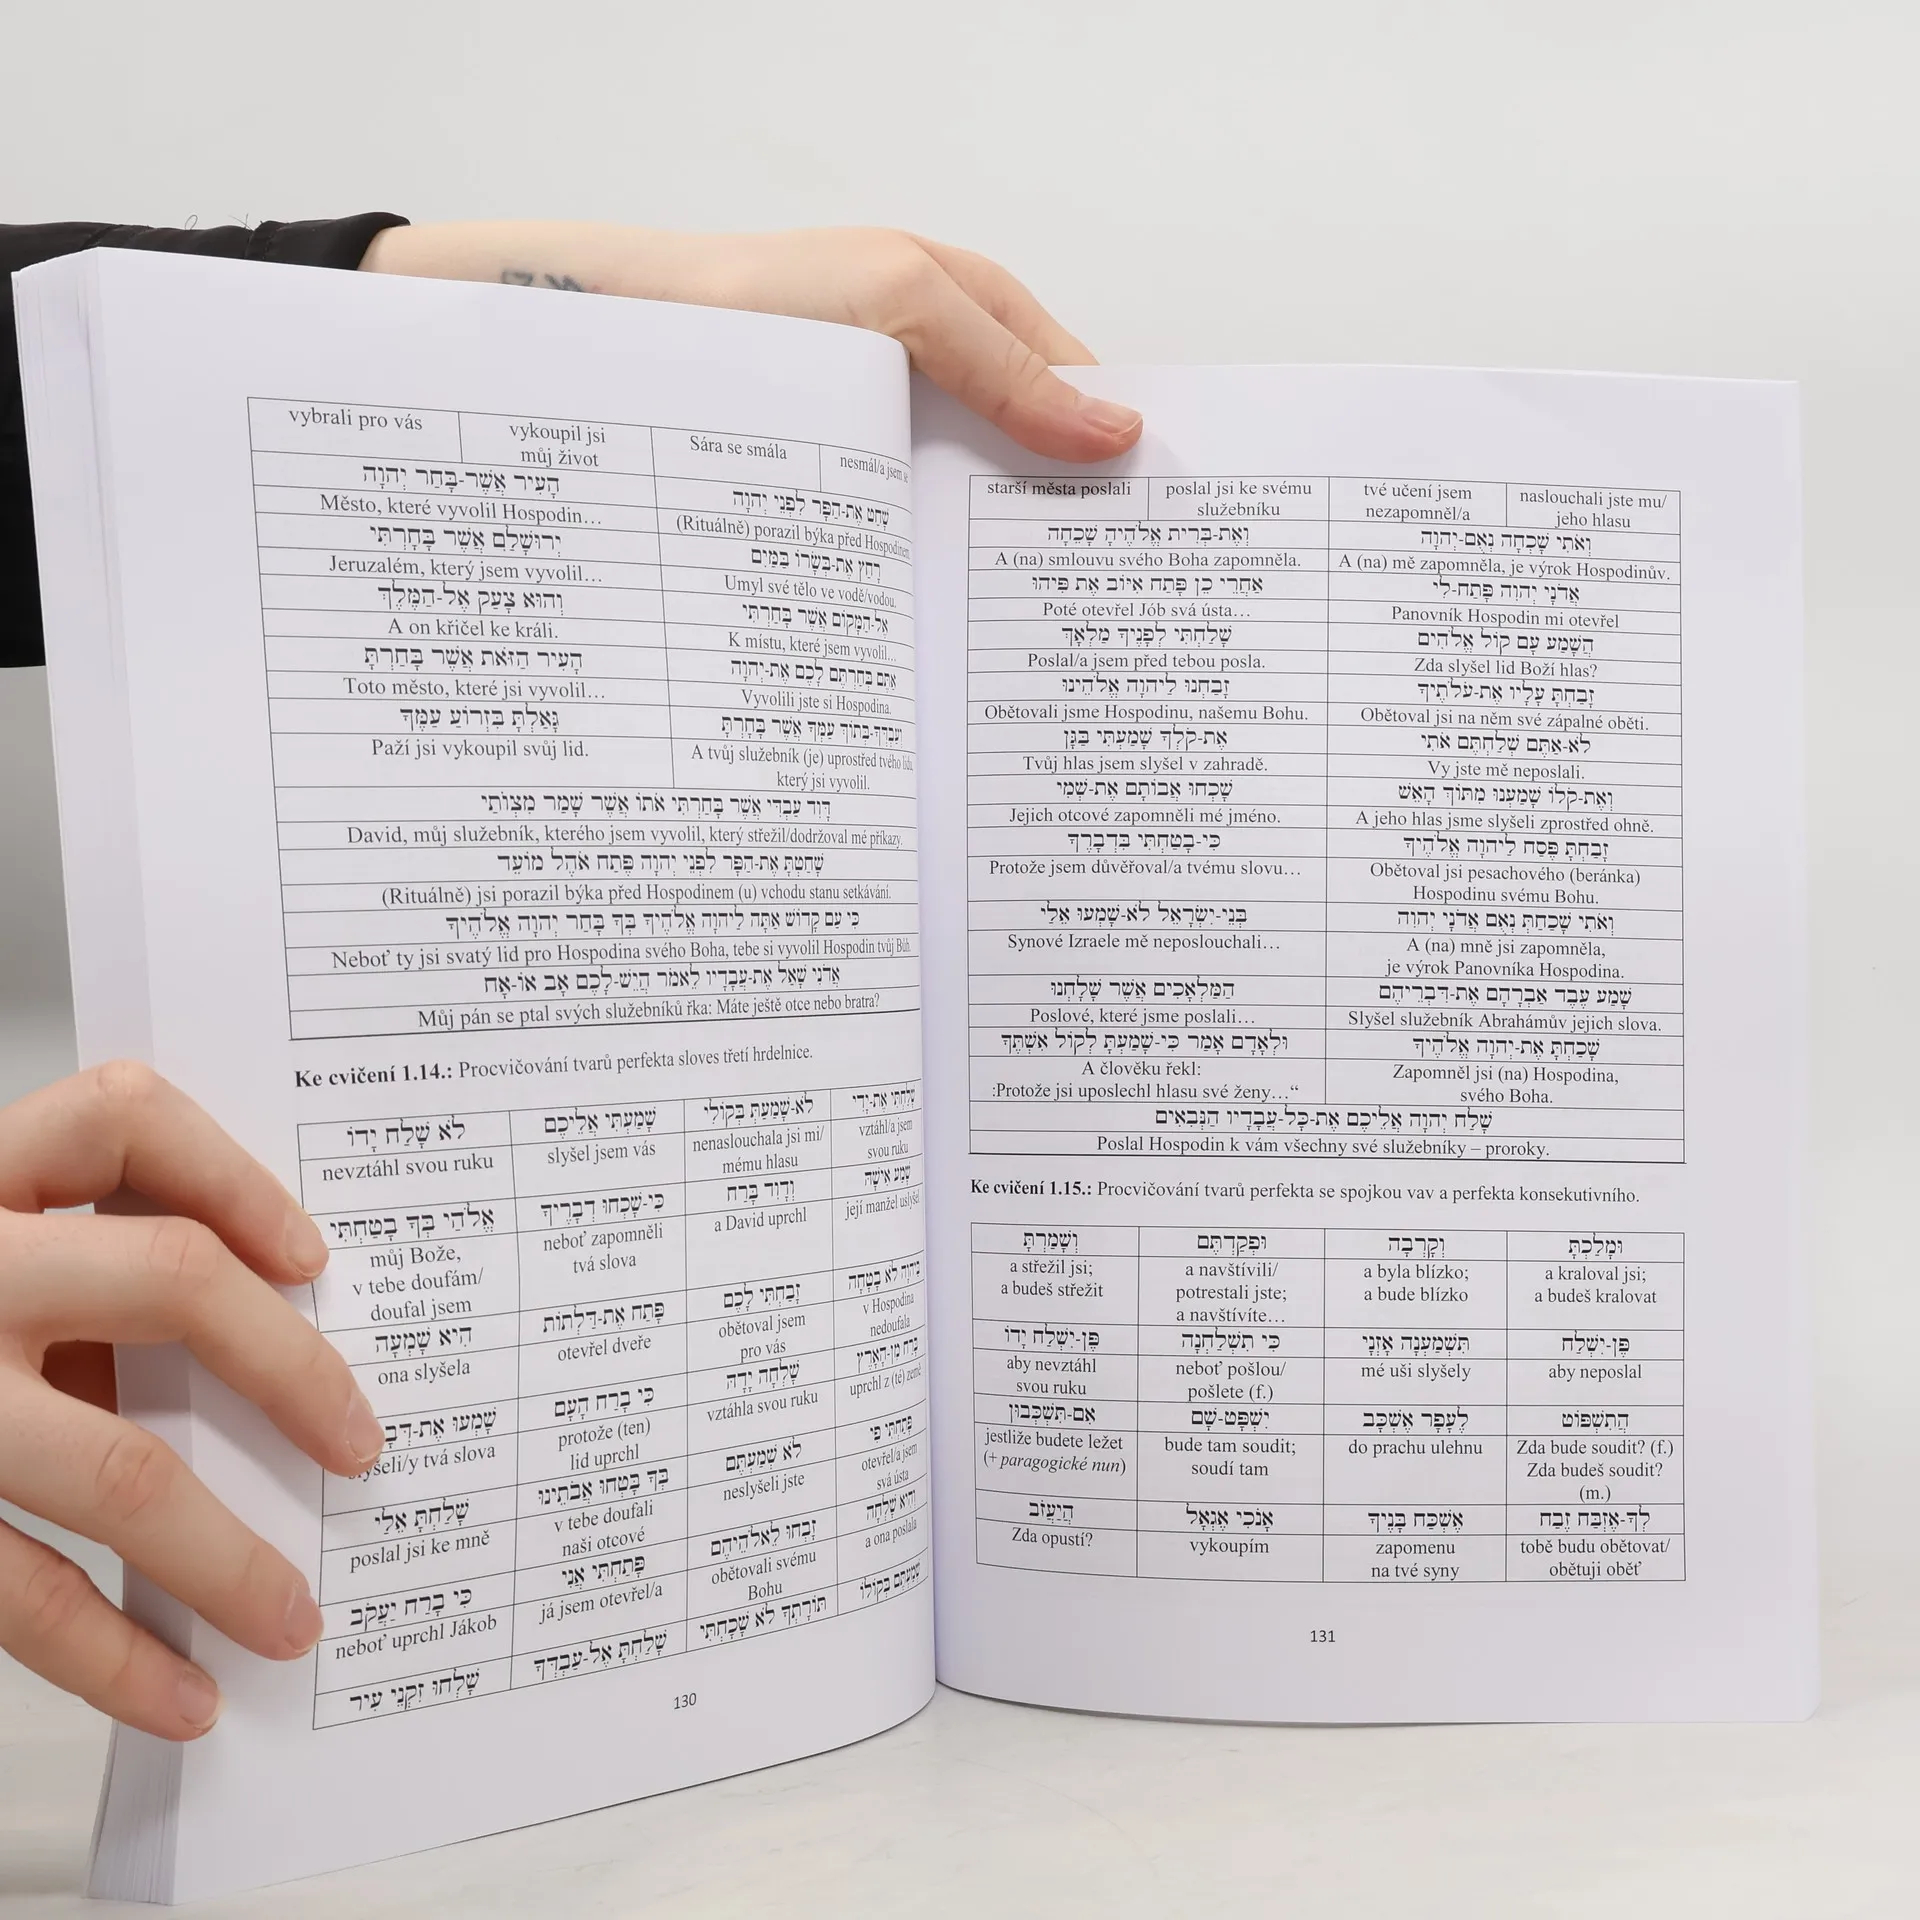 vybrali pro vás
vykoupil jsi
můj život
Sára se smála
nesmál/a jsem se
הָעִיר אֲשֶׁר-בָּחַר יְהוָה
שָׁחַט אֶת-הַפָּר לִפְנֵי יְהוָה
Město, které vyvolil Hospodin…
(Rituálně) porazil býka před Hospodinem
יְרוּשָׁלִַם אֲשֶׁר בָּחָרְתִּי
רָחַץ אֶת-בְּשָׂרוֹ בַּמַּיִם
Jeruzalém, který jsem vyvolil…
Umyl své tělo ve vodě/vodou.
וְהוּא צָעַק אֶל-הַמֶּלֶךְ
אֶל-הַמָּקוֹם אֲשֶׁר בָּחַרְתִּי
A on křičel ke králi.
K místu, které jsem vyvolil…
הָעִיר הַזֹּאת אֲשֶׁר בָּחַרְתָּ
אַתֶּם בְּחַרְתֶּם לָכֶם אֶת-יְהוָה
Toto město, které jsi vyvolil…
Vyvolili jste si Hospodina.
גָּאַלְתָּ בִּזְרוֹעַ עַמֶּךָ
וְעַבְדְּךָ-בְּתוֹךְ עַמְּךָ אֲשֶׁר בָּחָרְתָּ
Paží jsi vykoupil svůj lid.
A tvůj služebník (je) uprostřed tvého lidu,
který jsi vyvolil.
דָּוִד עַבְדִּי אֲשֶׁר בָּחַרְתִּי אֹתוֹ אֲשֶׁר שָׁמַר מִצְוֹתַי
David, můj služebník, kterého jsem vyvolil, který střežil/dodržoval mé příkazy.
שָׁחַטְתָּ אֶת-הַפָּר לִפְנֵי יְהוָה פֶּתַח אֹהֶל מוֹעֵד
(Rituálně) jsi porazil býka před Hospodinem (u) vchodu stanu setkávání.
כִּי עַם קָדוֹשׁ אַתָּה לַיהוָה אֱלֹהֶיךָ בְּךָ בָּחַר יְהוָה אֱלֹהֶיךָ
Neboť ty jsi svatý lid pro Hospodina svého Boha, tebe si vyvolil Hospodin tvůj Bůh.
אֲדֹנִי שָׁאַל אֶת-עֲבָדָיו לֵאמֹר הֲיֵשׁ-לָכֶם אָב אוֹ-אָח
Můj pán se ptal svých služebníků řka: Máte ještě otce nebo bratra?
Ke cvičení 1.14.: Procvičování tvarů perfekta sloves třetí hrdelnice.
לֹא שָׁלַח יָדוֹ
שָׁמַעְתִּי אֲלֵיכֶם
לֹא-שָׁמַעַתְּ בְּקוֹלִי
שָׁלַחְתִּי אֶת-יָדִי
nevztáhl svou ruku
slyšel jsem vás
nenaslouchala jsi mi/
mému hlasu
vztáhl/a jsem
svou ruku
אֱלֹהַי בְּךָ בָטַחְתִּי
כִּי-שָׁכְחוּ דְבָרֶיךָ
וְדָוִד בָּרַח
שָׁמַע אִישָׁהּ
můj Bože,
v tebe doufám/
doufal jsem
neboť zapomněli
tvá slova
a David uprchl
její manžel uslyšel
הִיא שָׁמְעָה
פָּתַח אֶת-דַּלְתוֹת
זָבַחְתִּי לָכֶם
בַּיהוָה לֹא בָטָחָה
ona slyšela
otevřel dveře
obětoval jsem
pro vás
v Hospodina
nedoufala
שָׁמְעוּ אֶת-דְּבָ
כִּי בָרַח הָעָם
שָׁלְחָה יָדָהּ
בָּרַח מִן-הָאָרֶץ
slyšeli/y tvá slova
protože (ten)
lid uprchl
vztáhla svou ruku
uprchl z (té) země
שָׁלַחְתָּ אֵלַי
בְּךָ בָּטְחוּ אֲבֹתֵינוּ
לֹא שְׁמַעְתֶּם
פָּתַחְתִּי פִי
poslal jsi ke mně
v tebe doufali
naši otcové
neslyšeli jste
otevřel/a jsem
svá ústa
כִּי בָרַח יַעֲקֹב
פָּתַחְתִּי אֲנִי
זָבְחוּ לֵאלֹהֵיהֶם
וְהִיא שָׁלְחָה
neboť uprchl Jákob
já jsem otevřel/a
obětovali svému
Bohu
a ona poslala
שָׁלְחוּ זִקְנֵי עִיר
שָׁלַחְתָּ אֶל-עַבְדְּךָ
תּוֹרָתְךָ לֹא שָׁכָחְתִּי
שְׁמַעְתֶּם בְּקוֹלוֹ
130
starší města poslali
poslal jsi ke svému
služebníku
tvé učení jsem
nezapomněl/a
naslouchali jste mu/
jeho hlasu
וְאֶת-בְּרִית אֱלֹהֶיהָ שָׁכֵחָה
וְאֹתִי שָׁכְחָה נְאֻם-יְהוָה
A (na) smlouvu svého Boha zapomněla.
A (na) mě zapomněla, je výrok Hospodinův.
אַחֲרֵי כֵן פָּתַח אִיּוֹב אֶת פִּיהוּ
אֲדֹנָי יְהוִה פָּתַח-לִי
Poté otevřel Jób svá ústa…
Panovník Hospodin mi otevřel
שָׁלַחְתִּי לְפָנֶיךָ מַלְאָךְ
הֲשָׁמַע עָם קוֹל אֱלֹהִים
Poslal/a jsem před tebou posla.
Zda slyšel lid Boží hlas?
זָבַחְנוּ לַיהוָה אֱלֹהֵינוּ
זָבַחְתָּ עָלָיו אֶת-עֹלֹתֶיךָ
Obětovali jsme Hospodinu, našemu Bohu.
Obětoval jsi na něm své zápalné oběti.
אֶת-קֹלְךָ שָׁמַעְתִּי בַּגָּן
לֹא-אַתֶּם שְׁלַחְתֶּם אֹתִי
Tvůj hlas jsem slyšel v zahradě.
Vy jste mě neposlali.
שָׁכְחוּ אֲבוֹתָם אֶת-שְׁמִי
וְאֶת-קֹלוֹ שָׁמַעְנוּ מִתּוֹךְ הָאֵשׁ
Jejich otcové zapomněli mé jméno.
A jeho hlas jsme slyšeli zprostřed ohně.
כִּי-בָטַחְתִּי בִּדְבָרֶךָ
זָבַחְתָּ פֶּסַח לַיהוָה אֱלֹהֶיךָ
Protože jsem důvěřoval/a tvému slovu…
Obětoval jsi pesachového (beránka)
Hospodinu svému Bohu.
בְּנֵי-יִשְׂרָאֵל לֹא-שָׁמְעוּ אֵלַי
וְאֹתִי שָׁכַחַתְּ נְאֻם אֲדֹנָי יְהוִה
Synové Izraele mě neposlouchali…
A (na) mně jsi zapomněla,
je výrok Panovníka Hospodina.
הַמַּלְאָכִים אֲשֶׁר שָׁלָחְנוּ
שָׁמַע עֶבֶד אַבְרָהָם אֶת-דִּבְרֵיהֶם
Poslové, které jsme poslali…
Slyšel služebník Abrahámův jejich slova.
וּלְאָדָם אָמַר כִּי-שָׁמַעְתָּ לְקוֹל אִשְׁתֶּךָ
שָׁכַחְתָּ אֶת-יְהוָה אֱלֹהֶיךָ
A člověku řekl:
:Protože jsi uposlechl hlasu své ženy…“
Zapomněl jsi (na) Hospodina,
svého Boha.
שָׁלַח יְהוָה אֲלֵיכֶם אֶת-כָּל-עֲבָדָיו הַנְּבִאִים
Poslal Hospodin k vám všechny své služebníky – proroky.
Ke cvičení 1.15.: Procvičování tvarů perfekta se spojkou vav a perfekta konsekutivního.
וְשָׁמַרְתָּ
וּפְקַדְתֶּם
וְקָרְבָה
וּמָלַכְתָּ
a střežil jsi;
a budeš střežit
a navštívili/
potrestali jste;
a navštívíte…
a byla blízko;
a bude blízko
a kraloval jsi;
a budeš kralovat
פֶּן-יִשְׁלַח יָדוֹ
כִּי תִשְׁלַחְנָה
תִּשְׁמַעְנָה אָזְנָי
פֶּן-יִשְׁלַח
aby nevztáhl
svou ruku
neboť pošlou/
pošlete (f.)
mé uši slyšely
aby neposlal
אִם-תִּשְׁכְּבוּן
יִשְׁפָּט-שָׁם
לֶעָפָר אֶשְׁכָּב
הֲתִשְׁפּוֹט
jestliže budete ležet
(+ paragogické nun)
bude tam soudit;
soudí tam
do prachu ulehnu
Zda bude soudit? (f.)
Zda budeš soudit?
(m.)
הֲיַעֲזֹב
אָנֹכִי אֶגְאָל
אֶשְׁכַּח בָּנֶיךָ
לְךָ-אֶזְבַּח זֶבַח
Zda opustí?
vykoupím
zapomenu
na tvé syny
tobě budu obětovat/
obětuji oběť
131